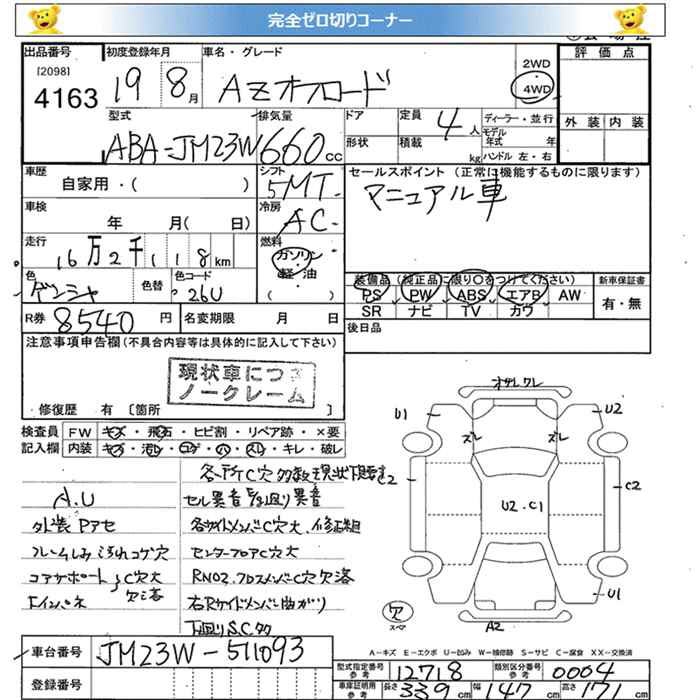 完全ゼロ切りコーナー
出品番号 初度登録年月 車名・グレード 評価点
[2098] 4163 19 8月 AZオフロード 2WD・4WD
外装 内装
型式 排気量 ドア 定員 4人 ディーラー・並行
ABA-JM23W 660cc 形状 積載 kg モデル年式 年
ハンドル 左・右
車歴 シフト セールスポイント(正常に機能するものに限ります)
自家用・( ) 5MT マニュアル車
車検 冷房
年 月( 日) AC
走行 燃料
16万2千118km ガソリン・軽油・( )
色 色替 色コード
ゲンシャ 26U
装備品(純正品に限り○をつけてください) 新車保証書
PS PW ABS エアB AW 有・無
SR ナビ TV カワ
R券 8540円 名変期限 月 日 後日品
注意事項申告欄(不具合内容等は具体的に記入して下さい)
現状車につき
ノークレーム
修復歴 有〔箇所 〕
検査員 FW キズ・飛石・ヒビ割・リペア跡・×要
記入欄 内装 キズ・汚レ・コゲ・穴・スレ・キレ・破レ
各所C穴多数現状下要す
A.U セル異音 異音
外装Pアセ 各サイドメンバC穴大、修正組
フレームしみ汚れコゲ穴 センターフロアC穴大
コアサポート C穴大 RNO2.クロスメンバC穴欠落
Fインパネ 欠落 右Rサイドメンバー曲がり
下廻りS.C多
オサレクレ
U1 U2
ズレ ズレ
C2 C2
U2.C1
U1
欠 スペア A2
A-キズ E-エクボ U-凹み W-補修跡 S-サビ C-腐食 XX-交換済
車台番号 JM23W-511093
登録番号
型式指定番号参考 12718 類別区分番号参考 0004
車庫証明用参考 長さ339cm 幅147cm 高さ171cm